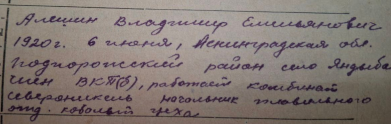 Алешин Владимир Емельянович
1920 г. 6 июня, Ленинградская обл.
Подпорожский район село Яндеба
член ВКП(б), работает комбинат
североникель начальник плавильного
отд. кобальт. цеха